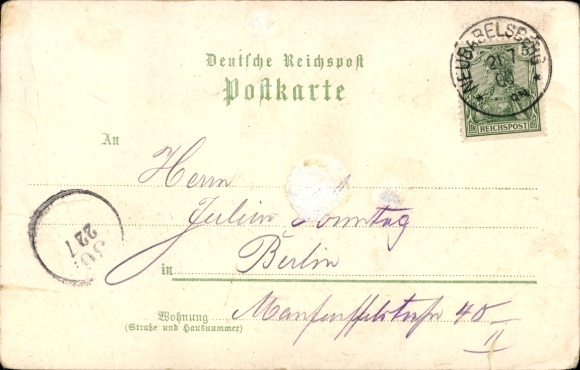 Deutsche Reichspost
Postkarte
NEUBABELSBERG
21.7
REICHSPOST
An
Herrn
Julius Sonntag
22 7
in Berlin
Wohnung
(Straße und Hausnummer)
Manteuffelstraße 40
II